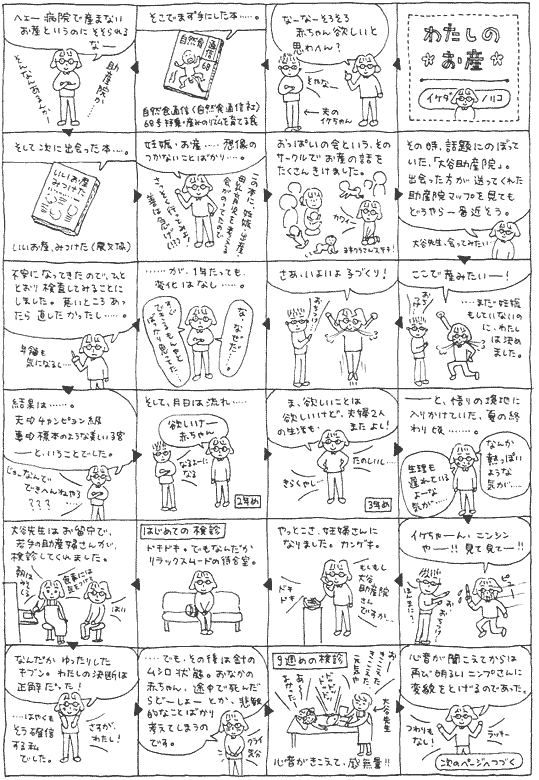 わたしの
お産
イケダノリコ
なーなーそろそろ
赤ちゃん欲しいと
思わへん？
そやなー
夫の
イケちゃん
そこでまず手にした本……。
自然食通信
68号
自然食通信(自然食通信社)
68号 特集・産みのリズムを育てる食
ヘエー 病院で産まない
お産というのにそそられる
なー
助産院か…
そんなんあるんか…
そして次に出会った本…。
いいお産
みつけた
いいお産、みつけた(農文協)
妊娠・お産……想像の
つかないことばかり…。
おっぱいの会という、その
サークルでお産の話を
たくさんききました。
カワイー
その時、話題にのぼって
いた、「大谷助産院」。
出会った方が送ってくれた
助産院マップを見ても
どうやら一番近そう。
大谷先生、会ってみたい
ここで産みたいー！
……まだ妊娠
もしていないの
に、わたし
は決め
ました。
さあ、いよいよ子づくり！
おちつけ
……が、1年たっても、
変化はなし……。
な、なぜだ…。
不安になってきたので、ひと
とおり検査してみることに
しました。悪いところあっ
たら直したかったし……。
年齢も
気になるし…
結果は……。
夫はチャンピョン級
妻は標本のような美しい子宮
ーと、いうことでした。
じゃ、なんで
できへんねやろ？
？？？……
そして、月日は流れ…
欲しいけー
赤ちゃん
なるよーに
なる
2年め
ま、欲しいことは
欲しいけど、夫婦2人
の生活も、 またよし！
たのしいし…
きらくやしー
3年め
ーと、悟りの境地に
入りかけていた、夏の終
わり頃………。
なんか
熱っぽい
ような
気が…
生理も
遅れている
よーな
気が…
イケちゃーん、ニンシン
やー!! 見て見てー!!
ほんまに？
おちつけ
やっとこさ、妊婦さんに
なりました。カンゲキ。
もしもし
大谷
助産院
さん
ですか…
ドキ
ドキ
はじめての検診
ドキドキ。でもなんだか
リラックスムードの待合室。
大谷先生はお留守で、
若手の助産婦さんが、
検診してくれました。
食事には
気をつけて
はい
なんだかゆったりした
キブン。わたしの決断は
正解だった！
……はやくも
そう確信
する私
でした。
さすが、
わたし！
……でも、その後は針の
ムシロ状態。おなかの
赤ちゃん、途中で死んだ
らどーしよーとか、悲観
的なことばかり
考えてしまうの
です。
クライ
気分
9週めの検診
大谷先生
心音がきこえて、感無量!!
心音が聞こえてからは
再び明るいニンプさんに
変貌をとげるのであった。
つわりも
なし！
ラッキー
次のページへつづく